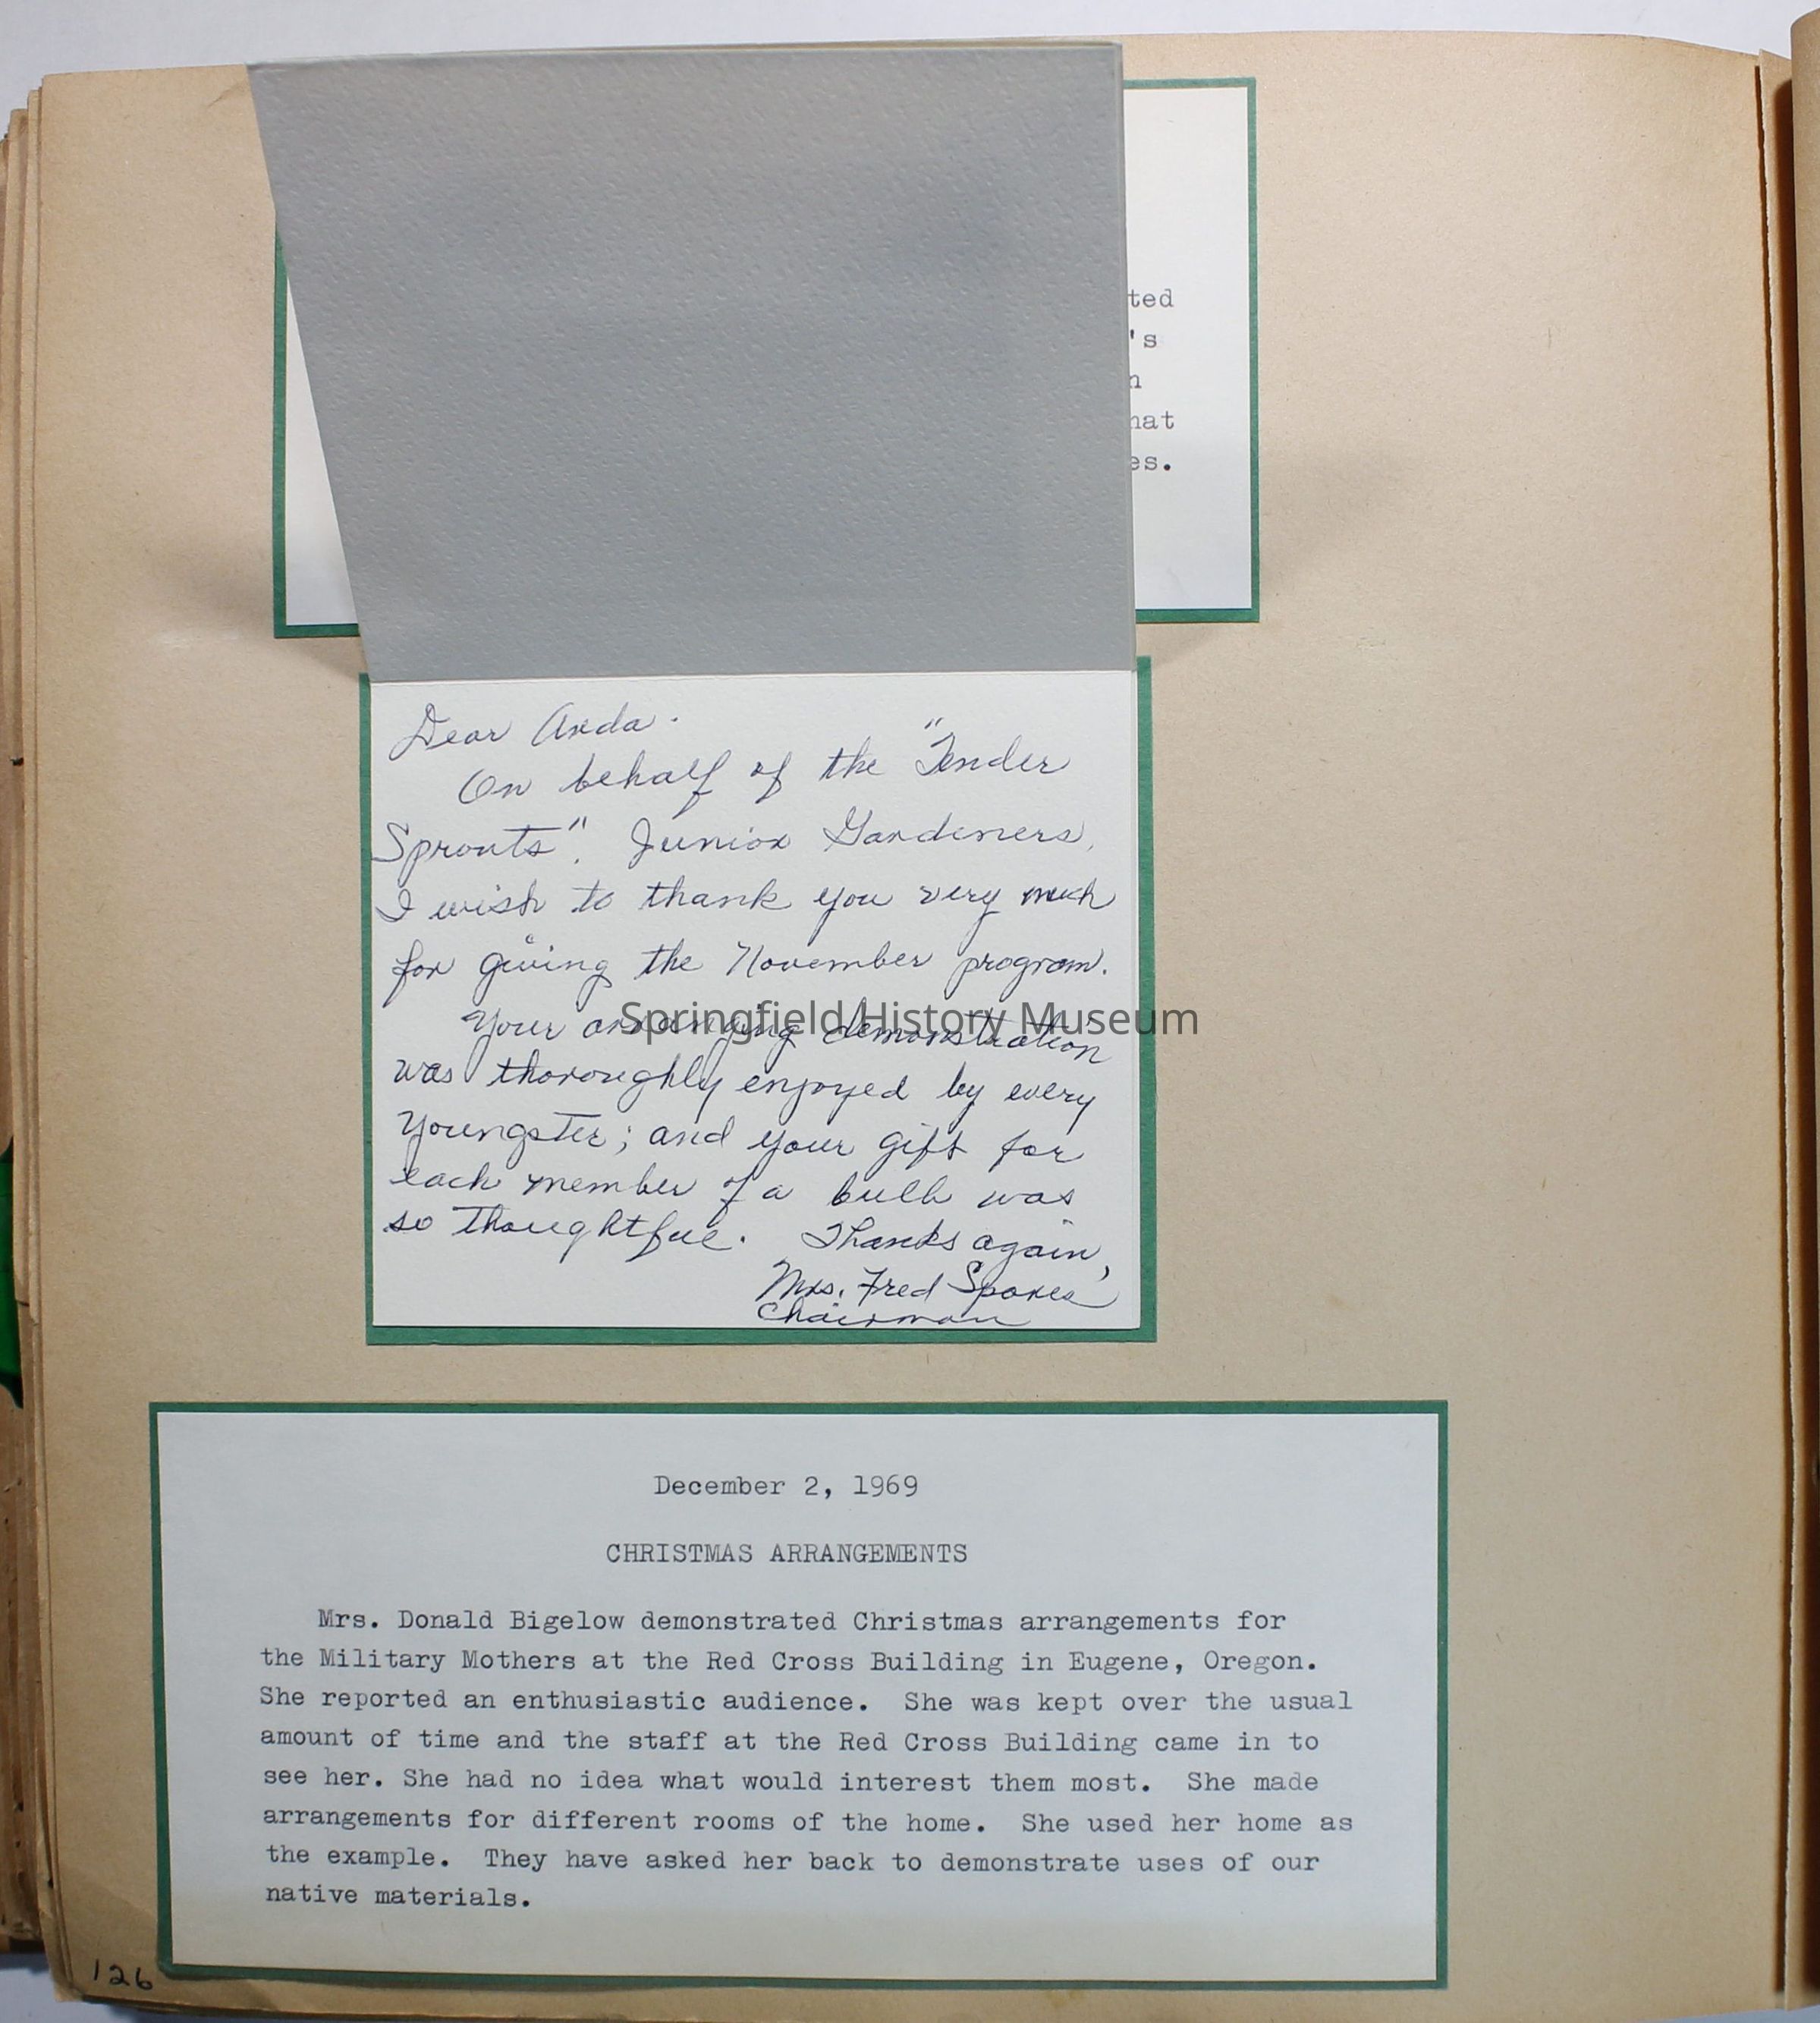 ted
's
n
hat
es.
Dear Anda.
On behalf of the "Tender
Sprouts". Junior Gardeners,
I wish to thank you very much
for giving the November program.
Your arranging demonstration
was thoroughly enjoyed by every
youngster; and your gift for
each member of a bulb was
so thoughtful. Thanks again,
Mrs. Fred Spores
Chairman
Springfield History Museum
December 2, 1969
CHRISTMAS ARRANGEMENTS
Mrs. Donald Bigelow demonstrated Christmas arrangements for
the Military Mothers at the Red Cross Building in Eugene, Oregon.
She reported an enthusiastic audience. She was kept over the usual
amount of time and the staff at the Red Cross Building came in to
see her. She had no idea what would interest them most. She made
arrangements for different rooms of the home. She used her home as
the example. They have asked her back to demonstrate uses of our
native materials.
126